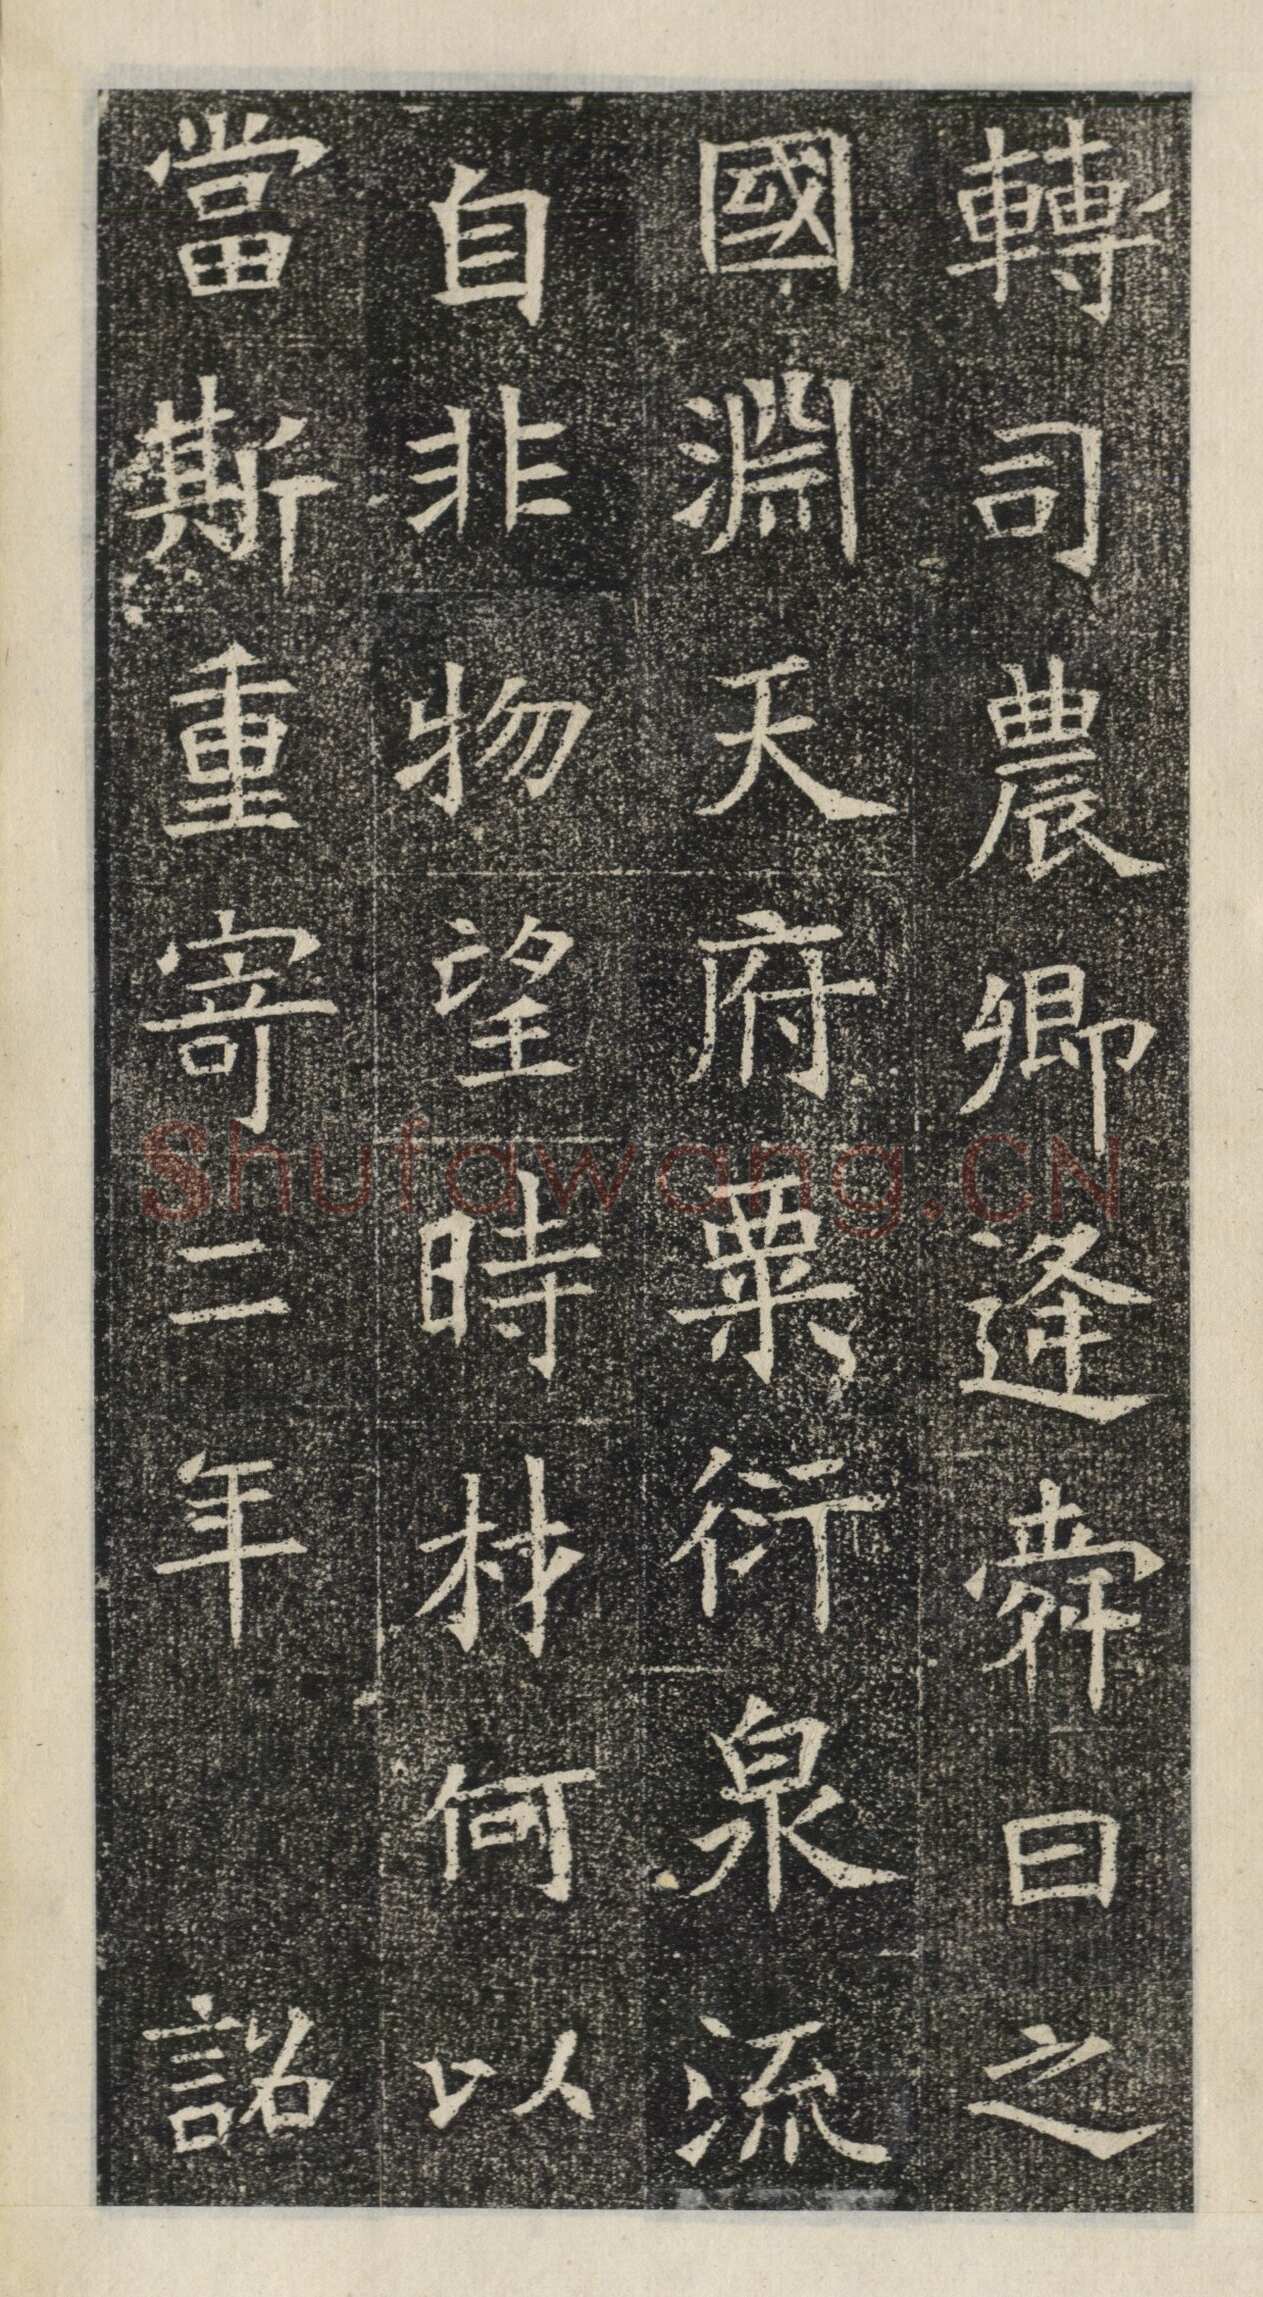 轉司農卿逢舜日之
國淵天府粟衍泉流
自非物望時材何以
當斯重寄二年 詔
Shufawang.CN